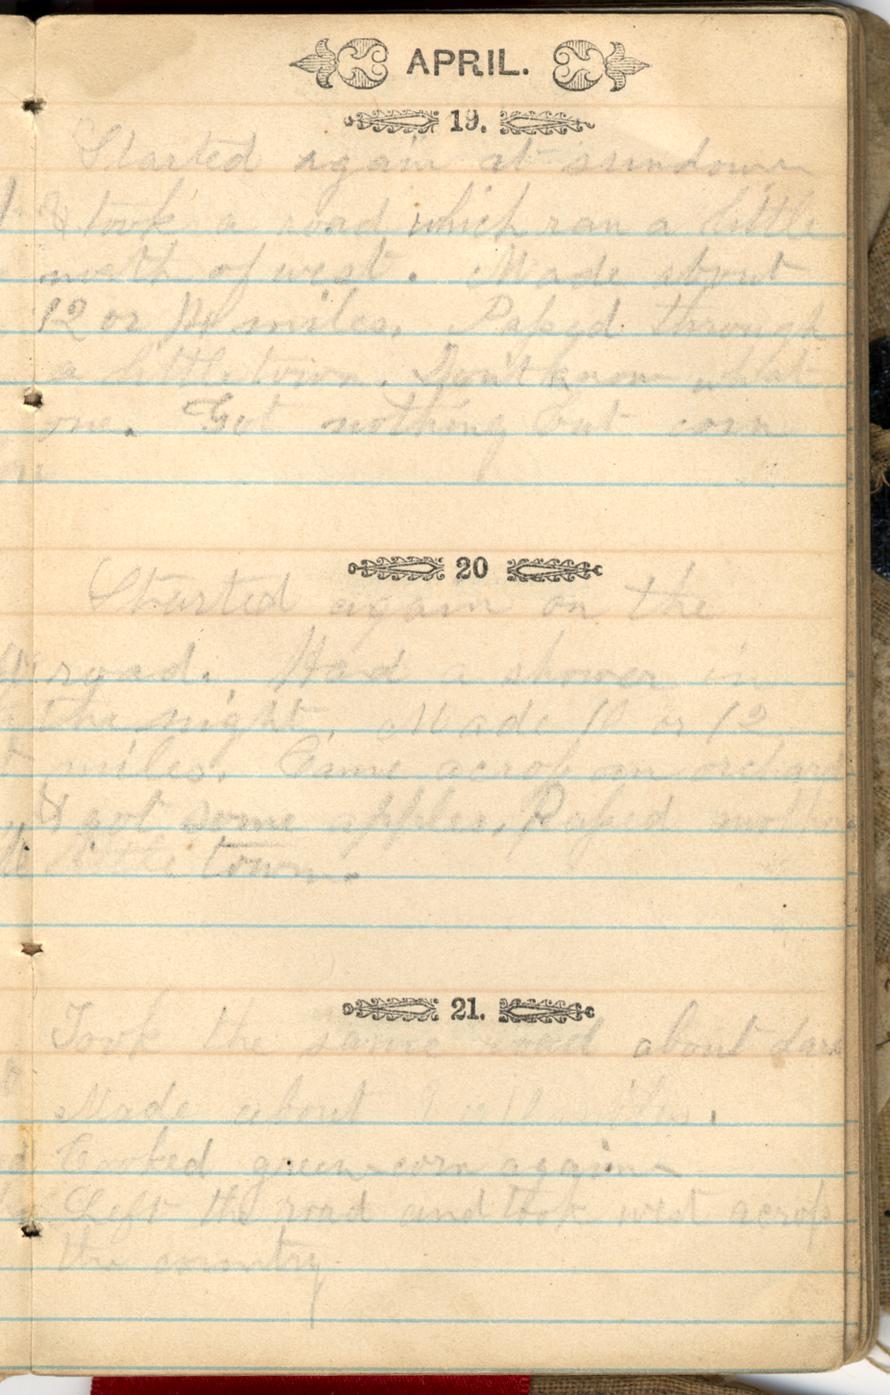 APRIL.
19.
Started again at sundown
& took a road which ran a little
north of west. Made about
12 or 14 miles. Passed through
a little town. Don't know what
one. Got nothing but corn
20
Started again on the
road. Had a shower in
the night. Made 10 or 12
miles. Came across an orchard
& got some apples. Passed another
little town.
21.
Took the same road about dark
Made about 9 or 10 miles.
Cooked green corn again
Left the road and took west across
the country